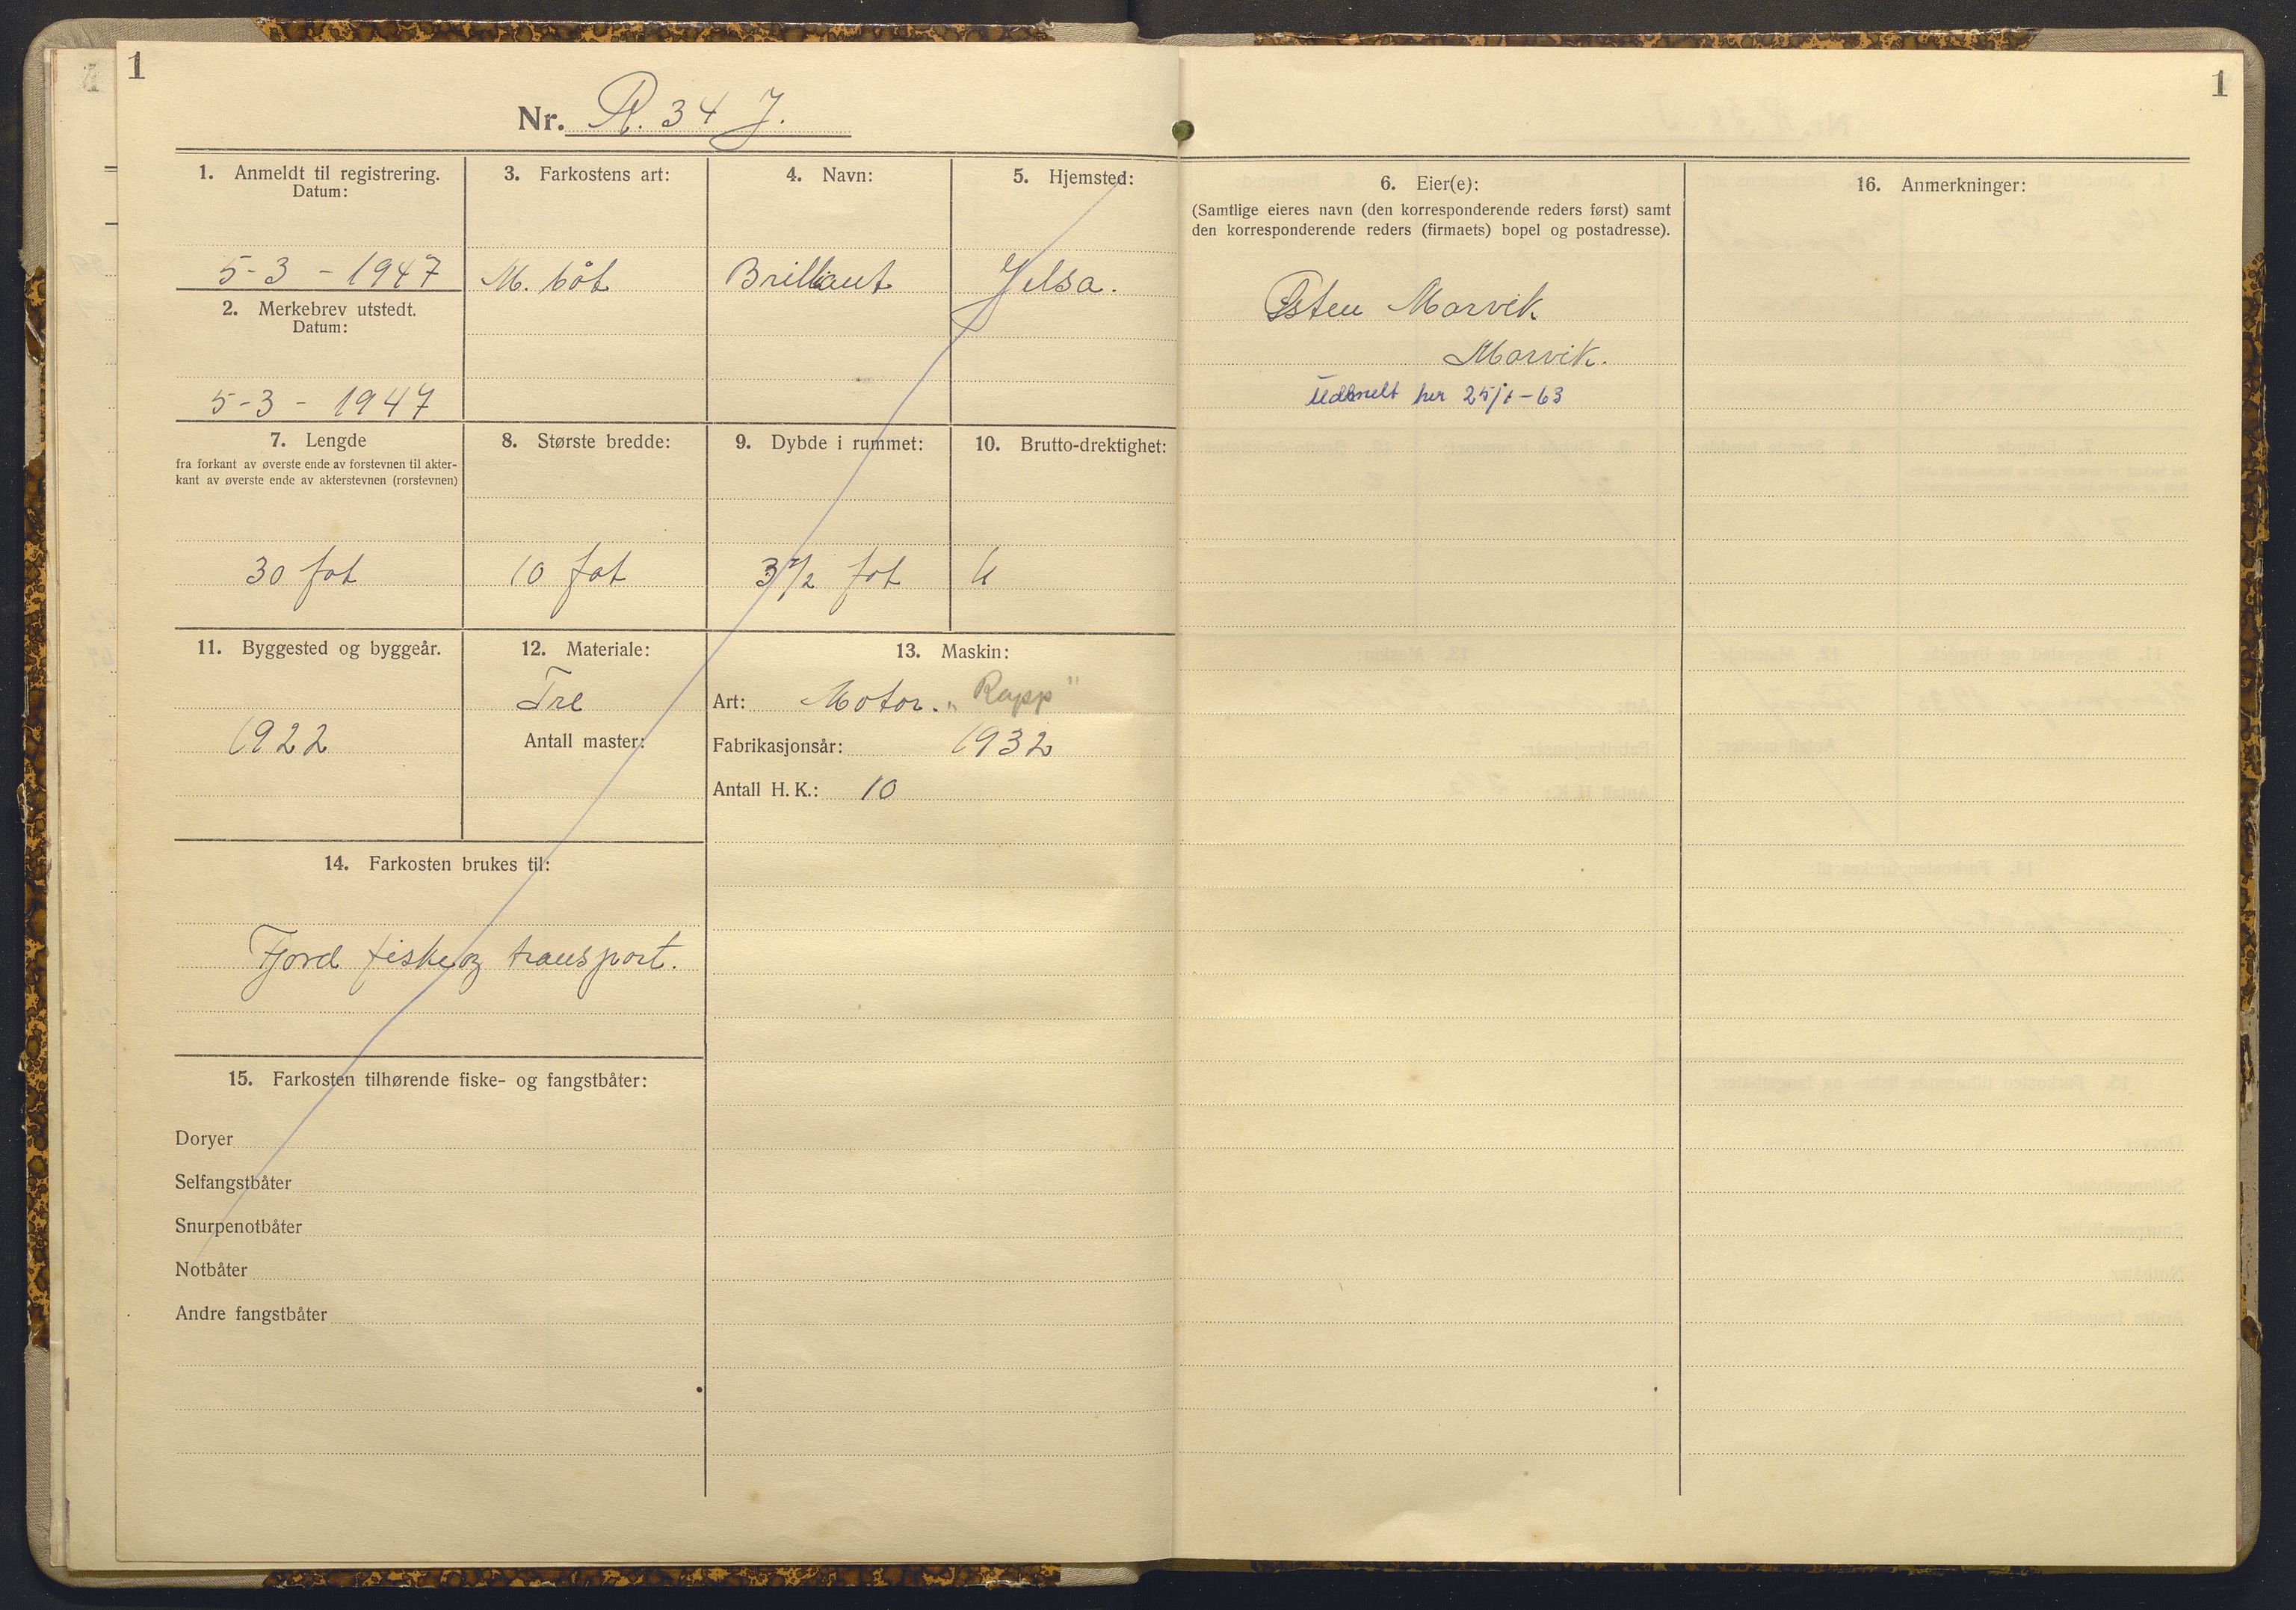 1
Nr. R. 34 J.
1. Anmeldt til registrering.
Datum:
5-3 - 1947
2. Merkebrev utstedt.
Datum:
5-3 - 1947
3. Farkostens art:
M. båt
4. Navn:
Brillant
5. Hjemsted:
Jelsa.
7. Lengde
fra forkant av øverste ende av forstevnen til akter-
kant av øverste ende av akterstevnen (rorstevnen)
30 fot
8. Største bredde:
10 fot
9. Dybde i rummet:
3 1/2 fot
10. Brutto-drektighet:
11. Byggested og byggeår.
1922
12. Materiale:
Tre
Antall master:
13. Maskin:
Art: Motor. „Rapp"
Fabrikasjonsår: 1932
Antall H. K.: 10
14. Farkosten brukes til:
Fjord fiske og transport.
15. Farkosten tilhørende fiske- og fangstbåter:
Doryer
Selfangstbåter
Snurpenotbåter
Notbåter
Andre fangstbåter
1
6. Eier(e):
(Samtlige eieres navn (den korresponderende reders først) samt
den korresponderende reders (firmaets) bopel og postadresse).
Østen Marvik
Marvik.
her 25/1-63
16. Anmerkninger: